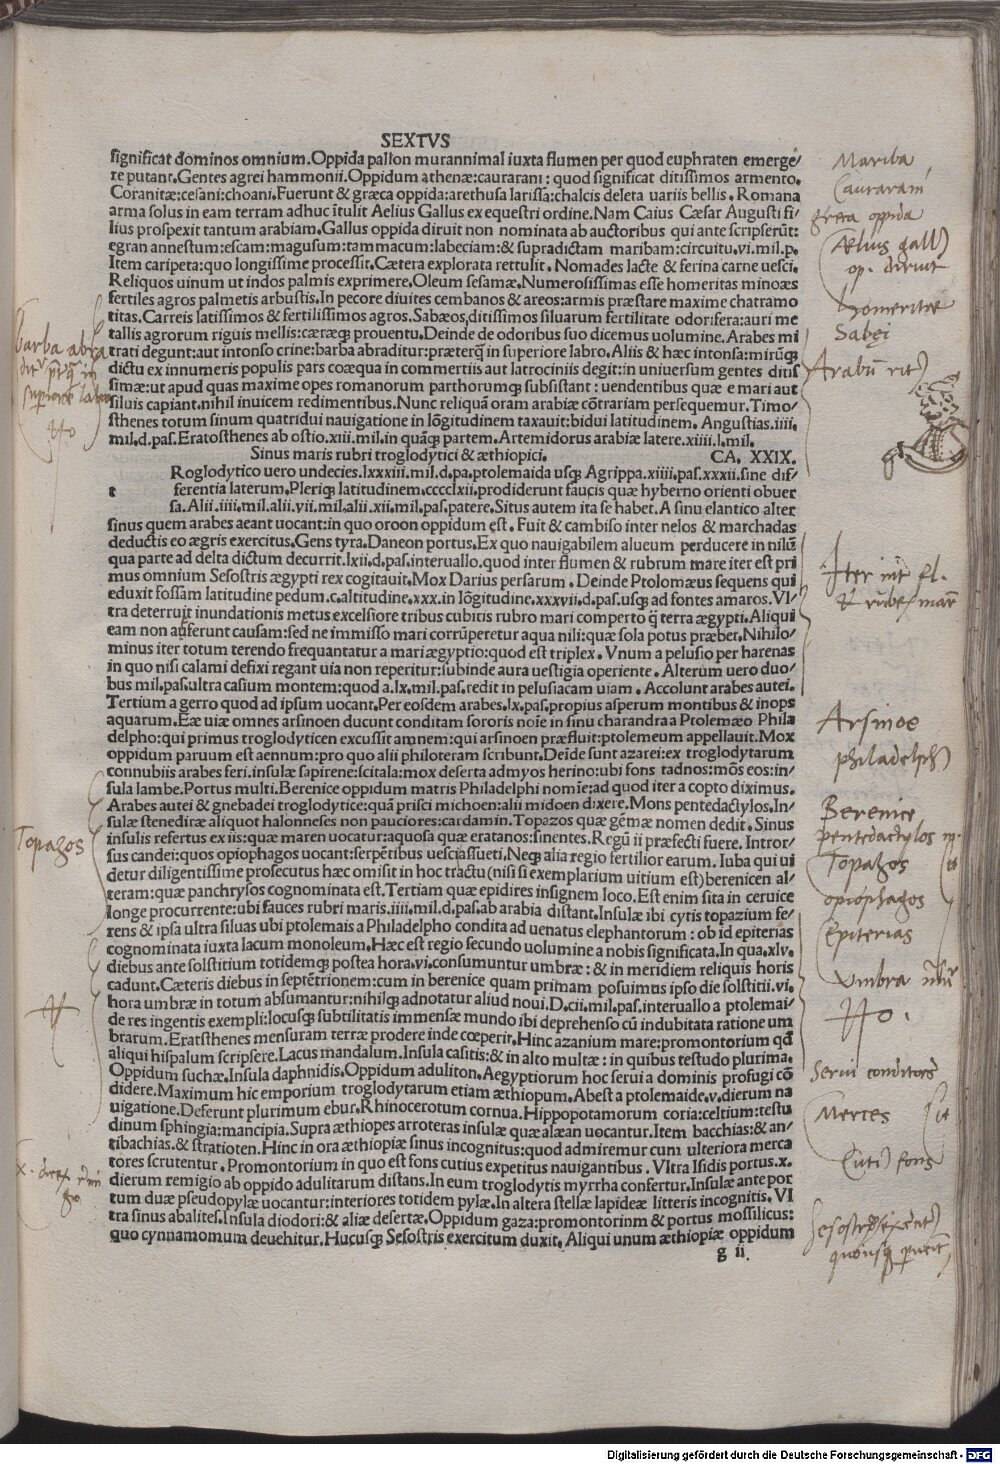 SEXTVS
significat dominos omnium. Oppida pallon murannimal iuxta flumen per quod euphraten emerge/
re putant. Gentes agrei hammonii. Oppidum athenæ: caurarani: quod significat ditissimos armento.
Coranitæ: cesani: choani. Fuerunt & græca oppida: arethusa larissa: chalcis deleta uariis bellis. Romana
arma solus in eam terram adhuc ītulit Aelius Gallus ex equestri ordine. Nam Caius Cæsar Augusti fi/
lius prospexit tantum arabiam. Gallus oppida diruit non nominata ab auctoribus qui ante scripserūt:
egran annestum: escam: magusum: tammacum: labeciam: & supradictam maribam: circuitu. vi. mil. p.
Item caripeta: quo longissime processit. Cætera explorata rettulit. Nomades lacte & ferina carne uesci.
Reliquos uinum ut indos palmis exprimere. Oleum sesamæ. Numerosissimas esse homeritas minoæs
fertiles agros palmetis arbustis. In pecore diuites cembanos & areos: armis præstare maxime chatramo
titas. Carreis latissimos & fertilissimos agros. Sabæos, ditissimos siluarum fertilitate odorifera: auri me
tallis agrorum riguis mellis: cæræq; prouentu. Deinde de odoribus suo dicemus uolumine. Arabes mi
trati degunt: aut intonso crine: barba abraditur: præterq̄ in superiore labro. Aliis & hæc intonsa: mirūq;
dictu ex innumeris populis pars coæqua in commertiis aut latrociniis degit: in uniuersum gentes ditis
simæ: ut apud quas maxime opes romanorum parthorumq; subsistant: uendentibus quæ e mari aut
siluis capiant. nihil inuicem redimentibus. Nunc reliquā oram arabiæ cōtrariam persequemur. Timo/
sthenes totum sinum quatridui nauigatione in lōgitudinem taxauit: bidui latitudinem. Angustias. iiii.
mil. d. pas. Eratosthenes ab ostio. xiii. mil. in quāq; partem. Artemidorus arabiæ latere. xiiii. l. mil.
Sinus maris rubri troglodytici & æthiopici. CA. XXIX.
t Roglodytico uero undecies. lxxxiii. mil. d. pa. ptolemaida usq; Agrippa. xiiii. pas. xxxii. sine dif/
ferentia laterum. Pleriq; latitudinem. cccclxii. prodiderunt faucis quæ hyberno orienti obuer
sa. Alii. iiii. mil. alii. vii. mil. alii. xii. mil. pas. patere. Situs autem ita se habet. A sinu elantico alter
sinus quem arabes aeant uocant: in quo oroon oppidum est. Fuit & cambiso inter nelos & marchadas
deductis eo ægris exercitus. Gens tyra. Daneon portus. Ex quo nauigabilem alueum perducere in nilū
qua parte ad delta dictum decurrit. lxii. d. pas. interuallo. quod inter flumen & rubrum mare iter est pri
mus omnium Sesostris ægypti rex cogitauit. Mox Darius persarum. Deinde Ptolomæus sequens qui
eduxit fossam latitudine pedum. c. altitudine. xxx. in lōgitudine. xxxvii. d. pas. usq; ad fontes amaros. Vl/
tra deterruit inundationis metus excelsiore tribus cubitis rubro mari comperto q̄ terra ægypti. Aliqui
eam non afferunt causam: sed ne immisso mari corrūperetur aqua nili: quæ sola potus præbet. Nihilo/
minus iter totum terendo frequantatur a mari ægyptio: quod est triplex. Vnum a pelusio per harenas
in quo nisi calami defixi regant uia non reperitur: subinde aura uestigia operiente. Alterum uero duo/
bus mil. pas. ultra casium montem: quod a. lx. mil. pas. redit in pelusiacam uiam. Accolunt arabes autei.
Tertium a gerro quod ad ipsum uocant. Per eosdem arabes. lx. pas. propius asperum montibus & inops
aquarum. Eæ uiæ omnes arsinoen ducunt conditam sororis noīe in sinu charandra a Ptolemæo Phila
delpho: qui primus troglodyticen excussit amnem: qui arsinoen præfluit: ptolemeum appellauit. Mox
oppidum paruum est aennum: pro quo alii philoteram scribunt. Deīde sunt azarei: ex troglodytarum
connubiis arabes feri. insulæ sapirene: scitala: mox deserta ad myos herino: ubi fons tadnos: mōs eos: in/
sula lambe. Portus multi. Berenice oppidum matris Philadelphi nomīe: ad quod iter a copto diximus.
Arabes autei & gnebadei troglodytice: quā prisci michoen: alii midoen dixere. Mons pentedactylos. In/
sulæ stenediræ aliquot halonneses non pauciores: cardamin. Topazos quæ gēmæ nomen dedit. Sinus
insulis refertus ex iis: quæ maren uocatur: aquosa quæ eratanos: sinentes. Regū ii præfecti fuere. Intror/
sus candei: quos opiophagos uocant: serpētibus uesci assueti. Neq; alia regio fertilior earum. Iuba qui ui
detur diligentissime prosecutus hæc omisit in hoc tractu (nisi si exemplarium uitium est) berenicen al/
teram: quæ panchrysos cognominata est. Tertiam quæ epidires insignem loco. Est enim sita in ceruice
longe procurrente: ubi fauces rubri maris. iiii. mil. d. pas. ab arabia distant. Insulæ ibi cytis topazium fe/
rens & ipsa ultra siluas ubi ptolemais a Philadelpho condita ad uenatus elephantorum: ob id epiterias
cognominata iuxta lacum monoleum. Hæc est regio secundo uolumine a nobis significata. In qua. xlv.
diebus ante solstitium totidemq; postea hora. vi. consumuntur umbræ: & in meridiem reliquis horis
cadunt. Cæteris diebus in septētrionem: cum in berenice quam primam posuimus ipso die solstitii. vi.
hora umbræ in totum absumantur: nihilq; adnotatur aliud noui. D. cii. mil. pas. interuallo a ptolemai/
de res ingentis exempli: locusq; subtilitatis immensæ mundo ibi deprehenso cū indubitata ratione um
brarum. Eratsthenes mensuram terræ prodere inde cœperit. Hinc azanium mare: promontorium qd
aliqui hispalum scripsere. Lacus mandalum. Insula casitis: & in alto multæ: in quibus testudo plurima.
Oppidum suchæ. Insula daphnidis. Oppidum aduliton. Aegyptiorum hoc serui a dominis profugi cō
didere. Maximum hic emporium troglodytarum etiam æthiopum. Abest a ptolemaide. v. dierum na
uigatione. Deferunt plurimum ebur. Rhinocerotum cornua. Hippopotamorum coria: celtium: testu
dinum sphingia: mancipia. Supra æthiopes arroteras insulæ quæ alæan uocantur. Item bacchias: & an/
tibachias. & stratioten. Hinc in ora æthiopiæ sinus incognitus: quod admiremur cum ulteriora merca
tores scrutentur. Promontorium in quo est fons cutius expetitus nauigantibus. Vltra Isidis portus. x.
dierum remigio ab oppido adulitarum distans. In eum troglodytis myrrha confertur. Insulæ ante por
tum duæ pseudopylæ uocantur: interiores totidem pylæ. In altera stellæ lapideæ litteris incognitis. Vl
tra sinus abalites. Insula diodori: & aliæ desertæ. Oppidum gaza: promontorinm & portus mossilicus:
quo cynnamomum deuehitur. Hucusq; Sesostris exercitum duxit. Aliqui unum æthiopiæ oppidum
g ii
Mariba
Caurarani
græca oppida
Ælius gall
op. diruit
homeritæ
Sabei
Arabū rit
Iter int fl.
& rubr mare
Arsinoe
philadelph
Berenice
pentedactylos m.
Topazos
opiophagos
Epiterias
Vmbra
No.
Serui conditores
Merces
Cuti fons
Sesostris exercit
quousq
barba abra
superiore labro
No
Topazos